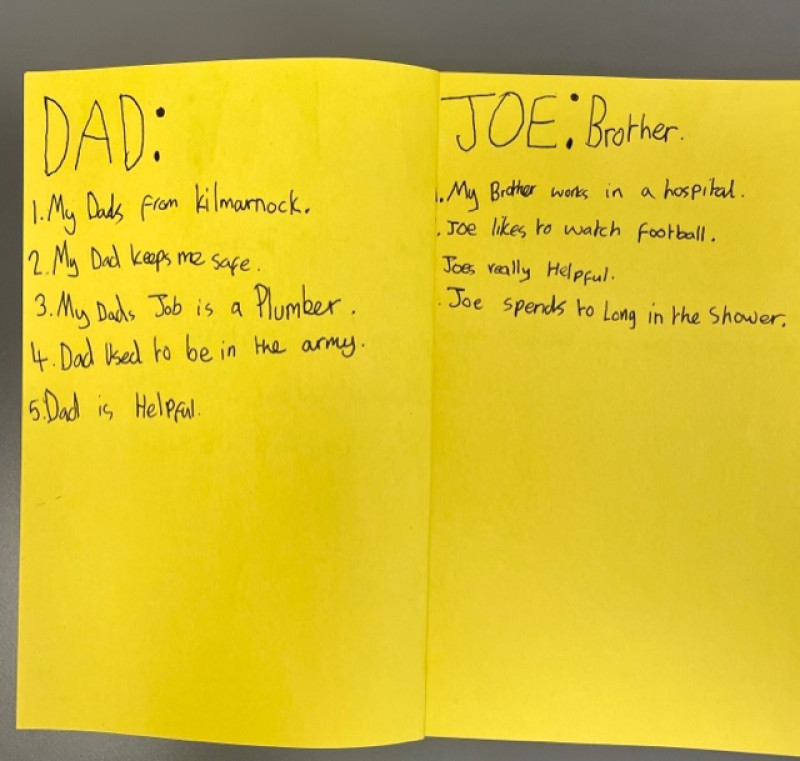 DAD:
1. My Dads from Kilmarnock.
2. My Dad keeps me safe.
3. My Dads Job is a Plumber.
4. Dad Used to be in the army.
5. Dad is Helpful.
JOE: Brother.
1. My Brother works in a hospital.
. Joe likes to watch football.
Joes really Helpful.
. Joe spends to Long in the Shower.